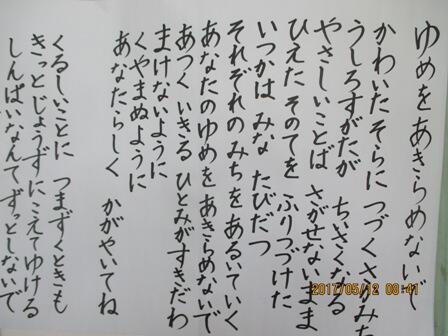 ゆめをあきらめないで
かわいたそらに つづくさかみち
うしろすがたが ちいさくなる
やさしいことば さがせないまま
ひえた そのてを ふりつづけた
いつかは みな たびだつ
それぞれのみちを あるいていく
あなたのゆめを あきらめないで
あつく いきる ひとみがすきだわ
まけないように
くやまぬように
あなたらしく かがやいてね
くるしいことに つまずくときも
きっと じょうずに こえてゆける
しんぱいなんて ずっとしないで
2017/05/12 08:41